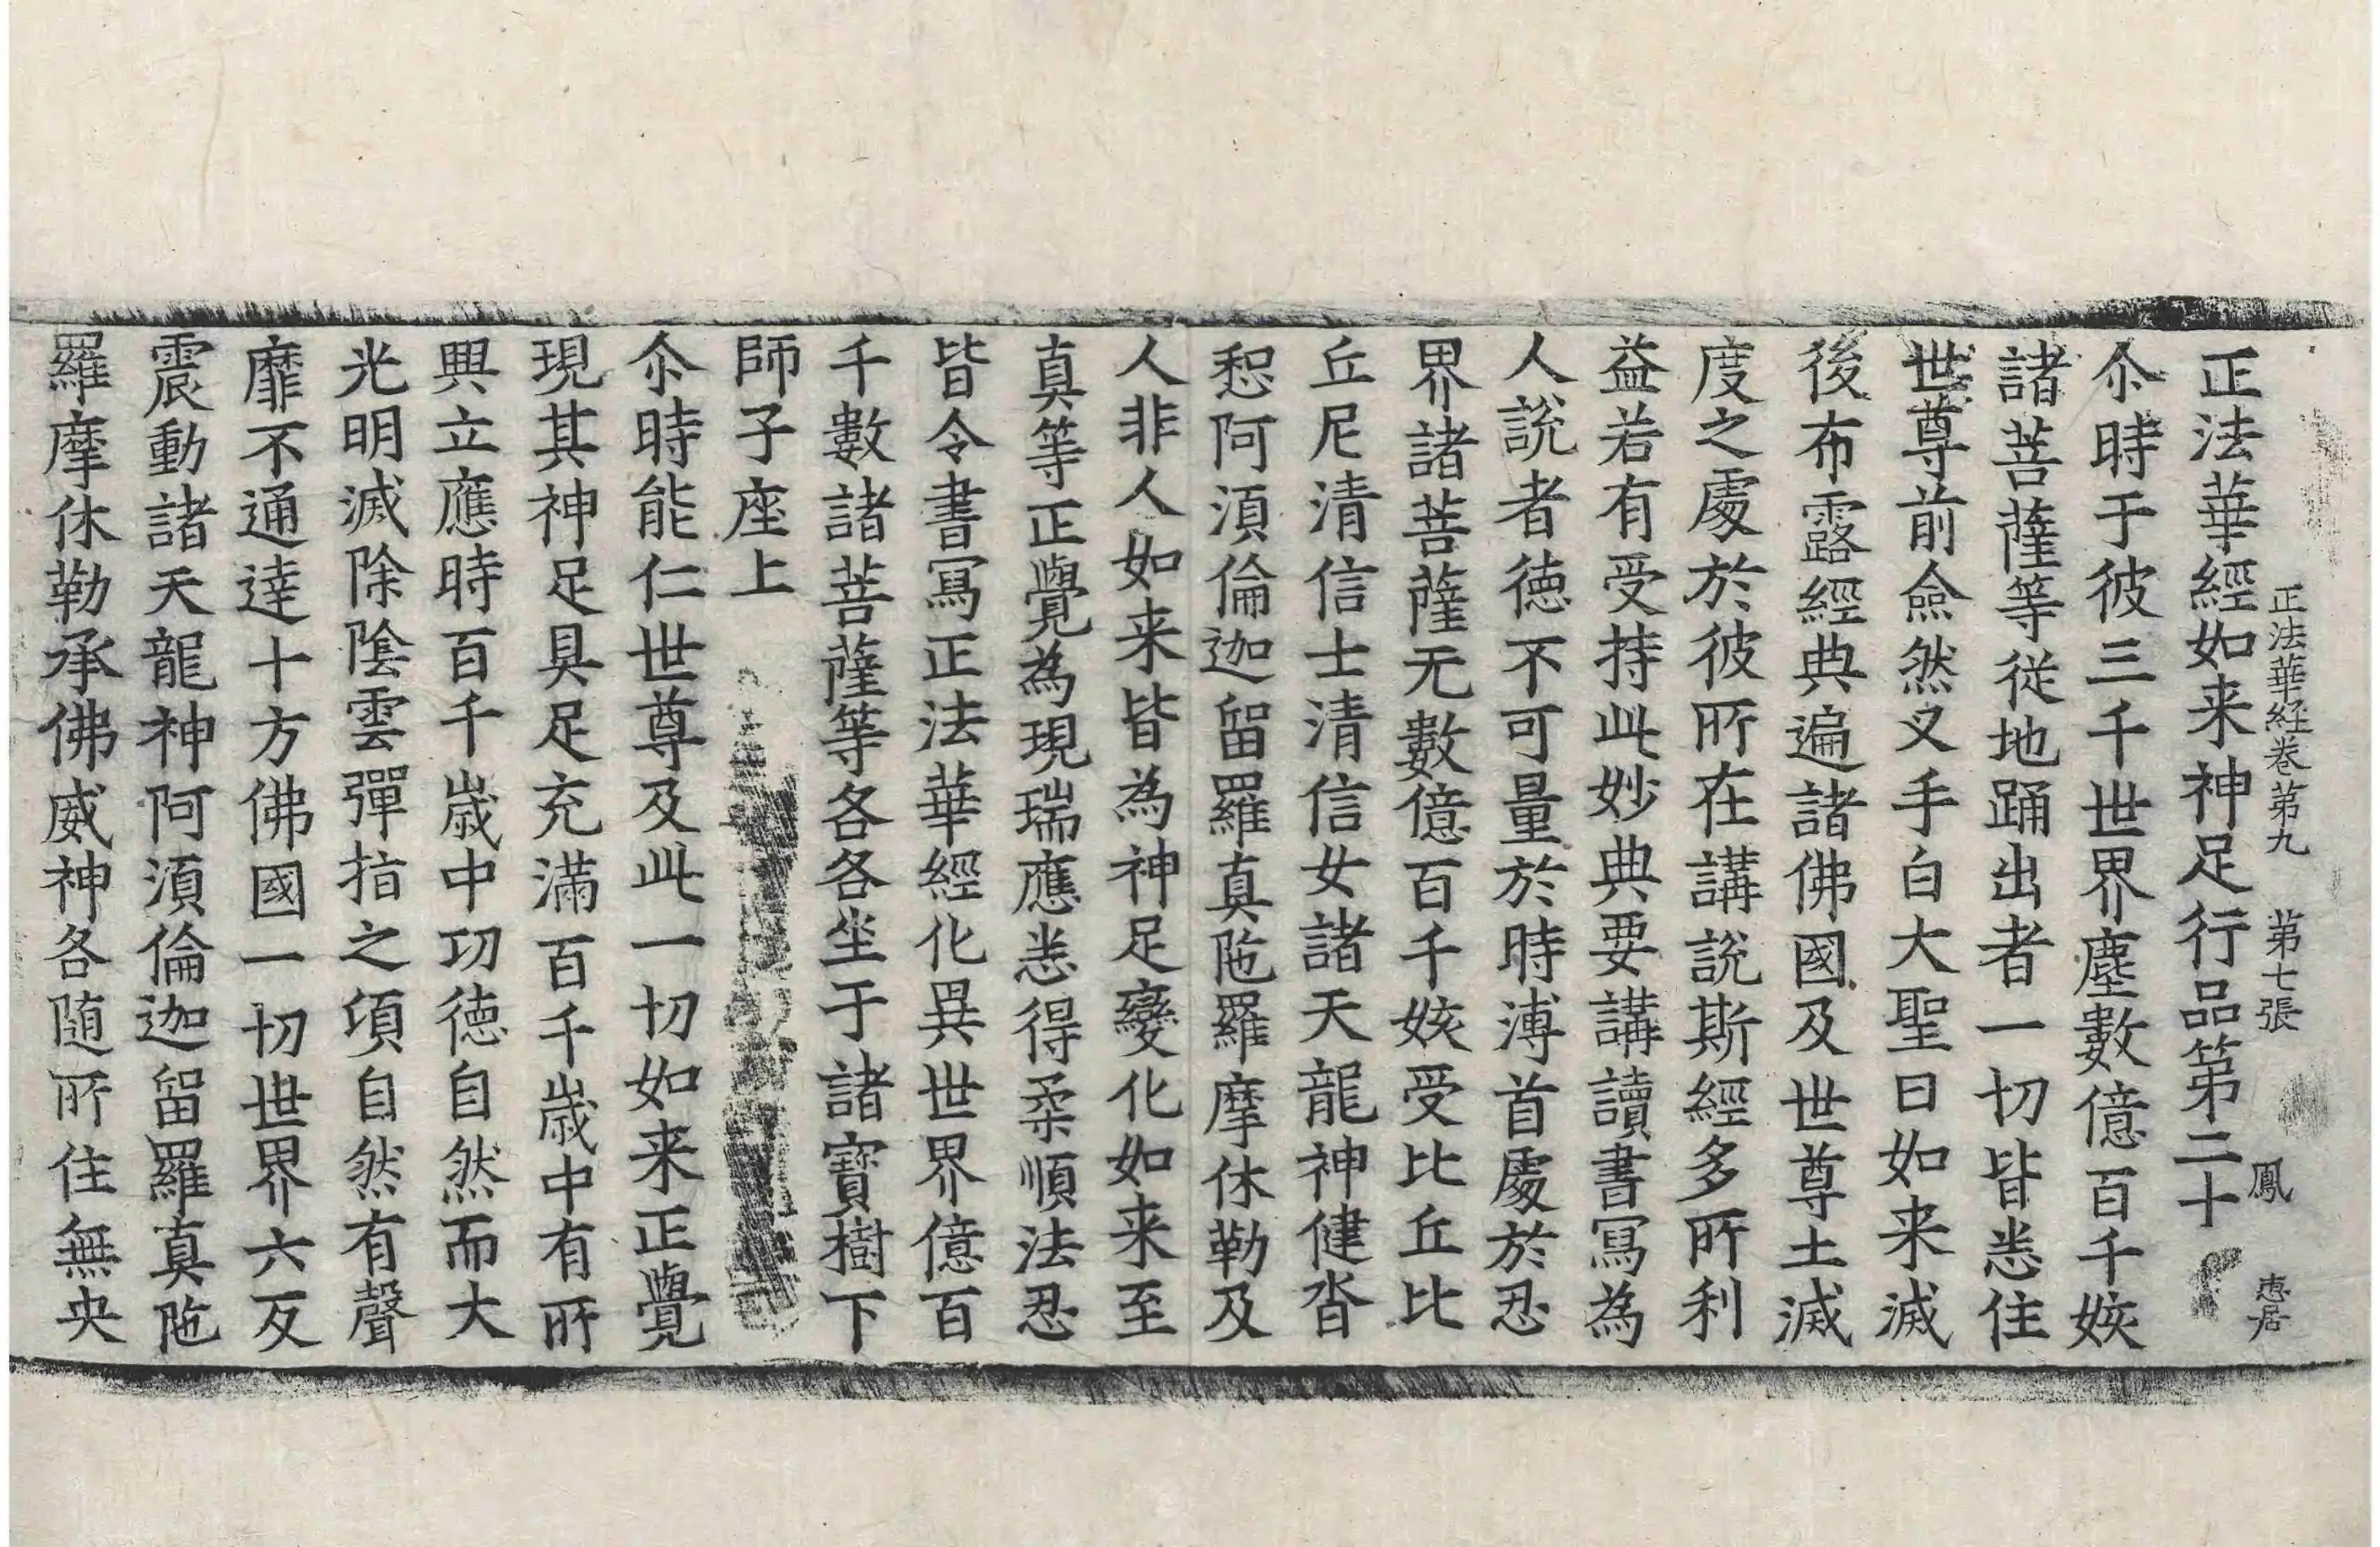 正法華経卷第九 第七張 鳳 惠居
正法華經如来神足行品第二十
尒時于彼三千世界塵數億百千姟
諸菩薩等從地踊出者一切皆悉住
世尊前僉然叉手白大聖曰如来滅
後布露經典遍諸佛國及世尊土滅
度之處於彼所在講說斯經多所利
益若有受持此妙典要講讀書寫為
人說者德不可量於時溥首處於忍
界諸菩薩无數億百千姟受比丘比
丘尼清信士清信女諸天龍神健沓
惒阿湏倫迦留羅真陁羅摩休勒及
人非人如来皆為神足變化如来至
真等正覺為現瑞應悉得柔順法忍
皆令書寫正法華經化異世界億百
千數諸菩薩等各各坐于諸寶樹下
師子座上
尒時能仁世尊及此一切如来正覺
現其神足具足充滿百千歲中有所
興立應時百千歲中功德自然而大
光明滅除陰雲彈指之頃自然有聲
靡不通達十方佛國一切世界六反
震動諸天龍神阿湏倫迦留羅真陁
羅摩休勒承佛威神各随所住無央